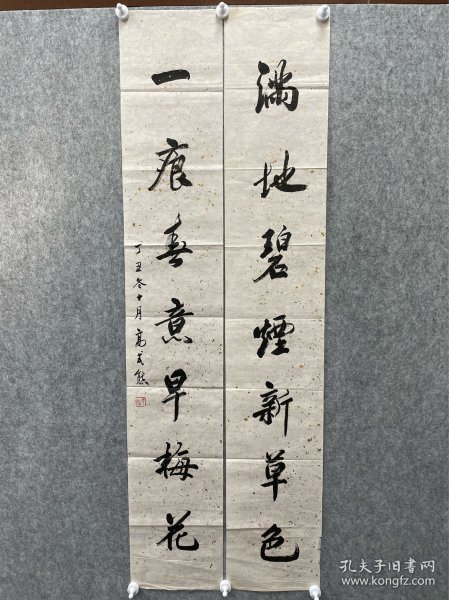 满地碧煙新草色
一痕春意早梅花
丁丑冬十月高式熊
孔夫子旧书网
www.kongfz.com